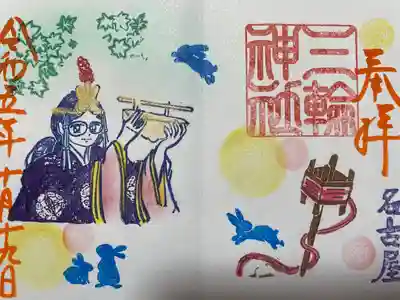 奉拝
名古屋
三輪
神社
令和五年十月十九日